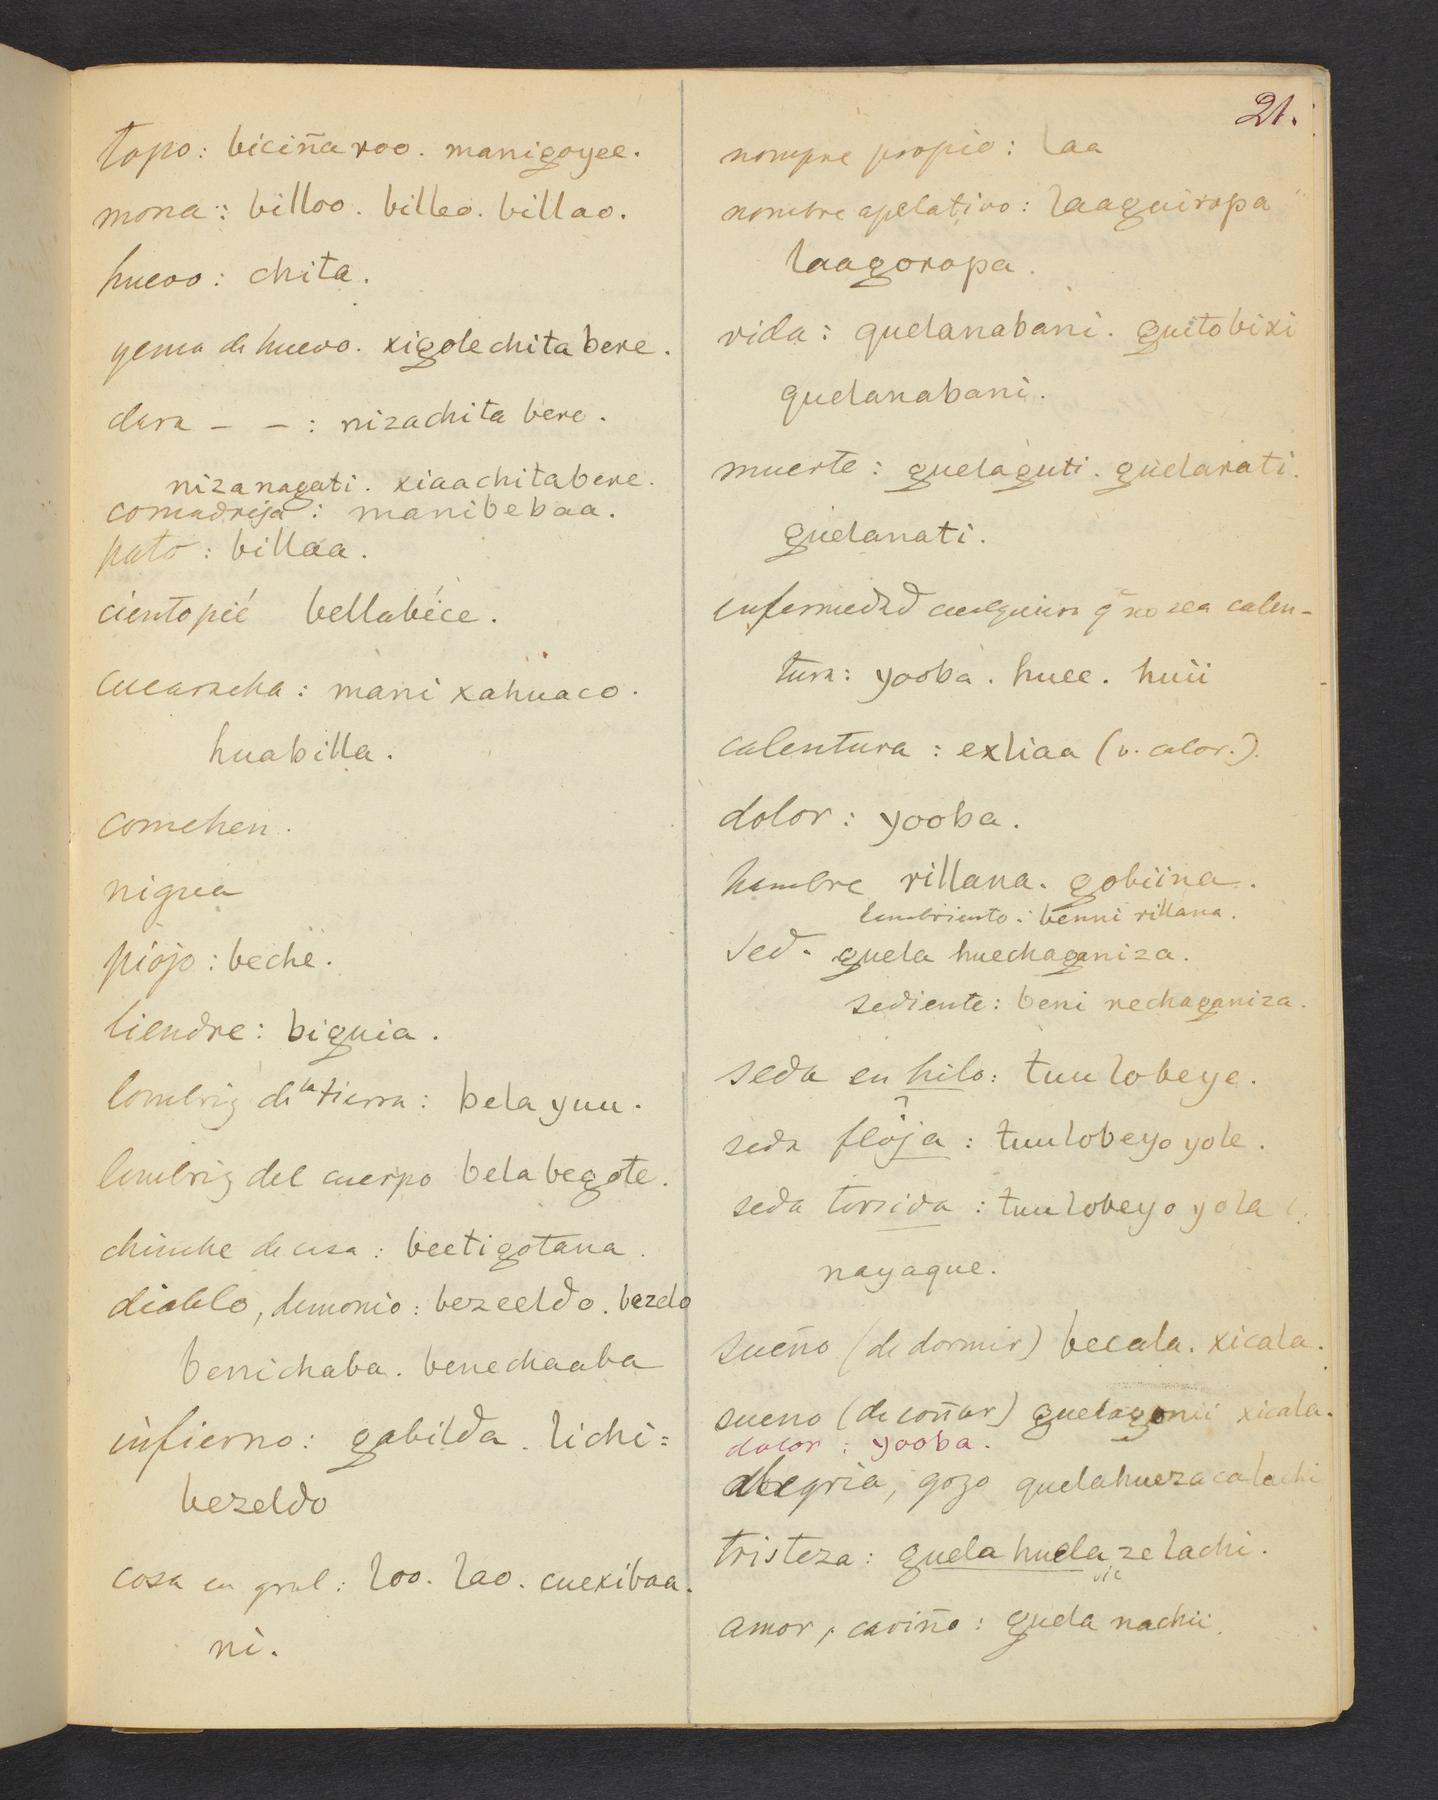 21.
topo: biciña roo. manigoyee.
mona: billoo. billeo. billao.
huevo: chita.
yema de huevo. xigolechita bere.
clara – – : nizachita bere.
nizanagati. xiaachitabere.
comadreja: manibebaa.
pato: billaa.
cientopié bellabéce.
cucaracha: mani xahuaco.
huabilla.
comehen.
nigua
piojo: beche.
liendre: biguia.
lombriz de la tierra: bela yuu.
lombriz del cuerpo bela begote.
chinche de casa: beetigotana.
diablo, demonio: bezeeldo. bezelo
benichaba. benechaaba
infierno: gabilda. lichi=
bezeldo
cosa en gral: loo. lao. cuexibaa.
ni.
nompre propio: laa
nombre apelativo: laaguiropa
laagoropa.
vida: quelanabani. guitobixi
quelanabani.
muerte: guelaguti. guelarati.
guelanati.
enfermedad cualquiera q̃ no sea calen-
tura: yooba. huee. huii
calentura: exliaa (v. calor.).
dolor: yooba.
hambre rillana. gobiina.
hambriento: benni rillana.
sed. guela huechaganiza.
sediente: beni nechaganiza.
seda en hilo: tuu lobeye.
?
seda floja: tuulobeyo yole.
seda torsida: tuulobeyo yola
nayaque.
sueño (de dormir) becala. xicala.
sueno (de soñar) guelagonii xicala.
dolor: yooba.
alegria, gozo quelahuezacalachi
tristeza: guela huela ze lachi.
sic
amor, cariño: guela nachii.